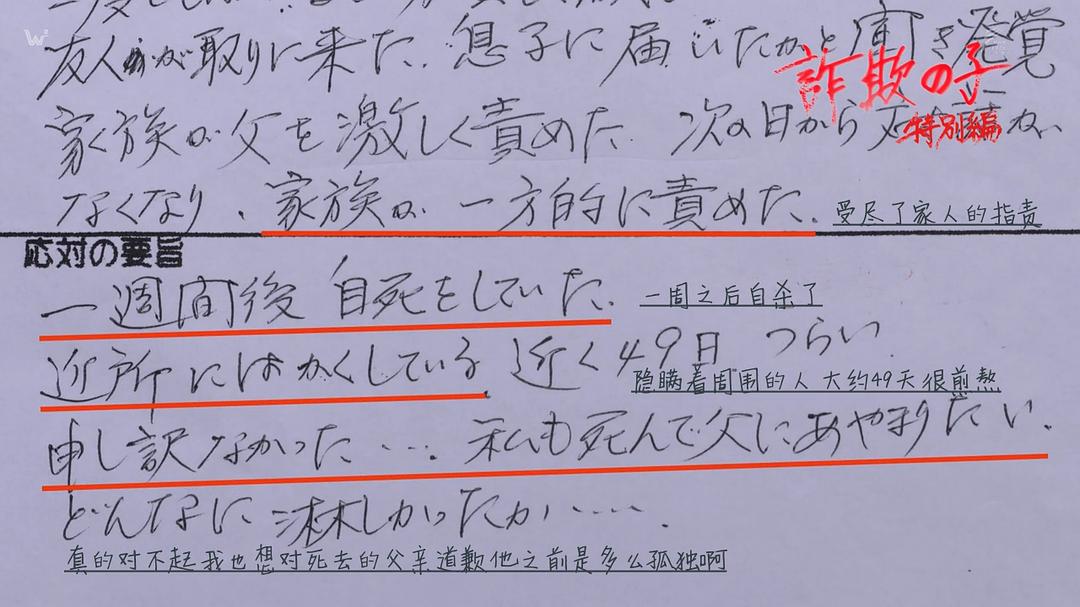 友人が取りに来た. 息子に届いたかと聞き発覚
詐欺の子
特別編
家族が父を激しく責めた. 次の日から
なくなり、家族が一方的に責めた.
受尽了家人的指责
応対の要旨
一週間後 自死をしていた.
一周之后自杀了
近所にはかくしている. 近く49日 つらい
隐瞒着周围的人 大约49天很煎熬
申し訳なかった…. 私も死んで父にあやまりたい.
どんなに淋しかったか…….
真的对不起我也想对死去的父亲道歉他之前是多么孤独啊